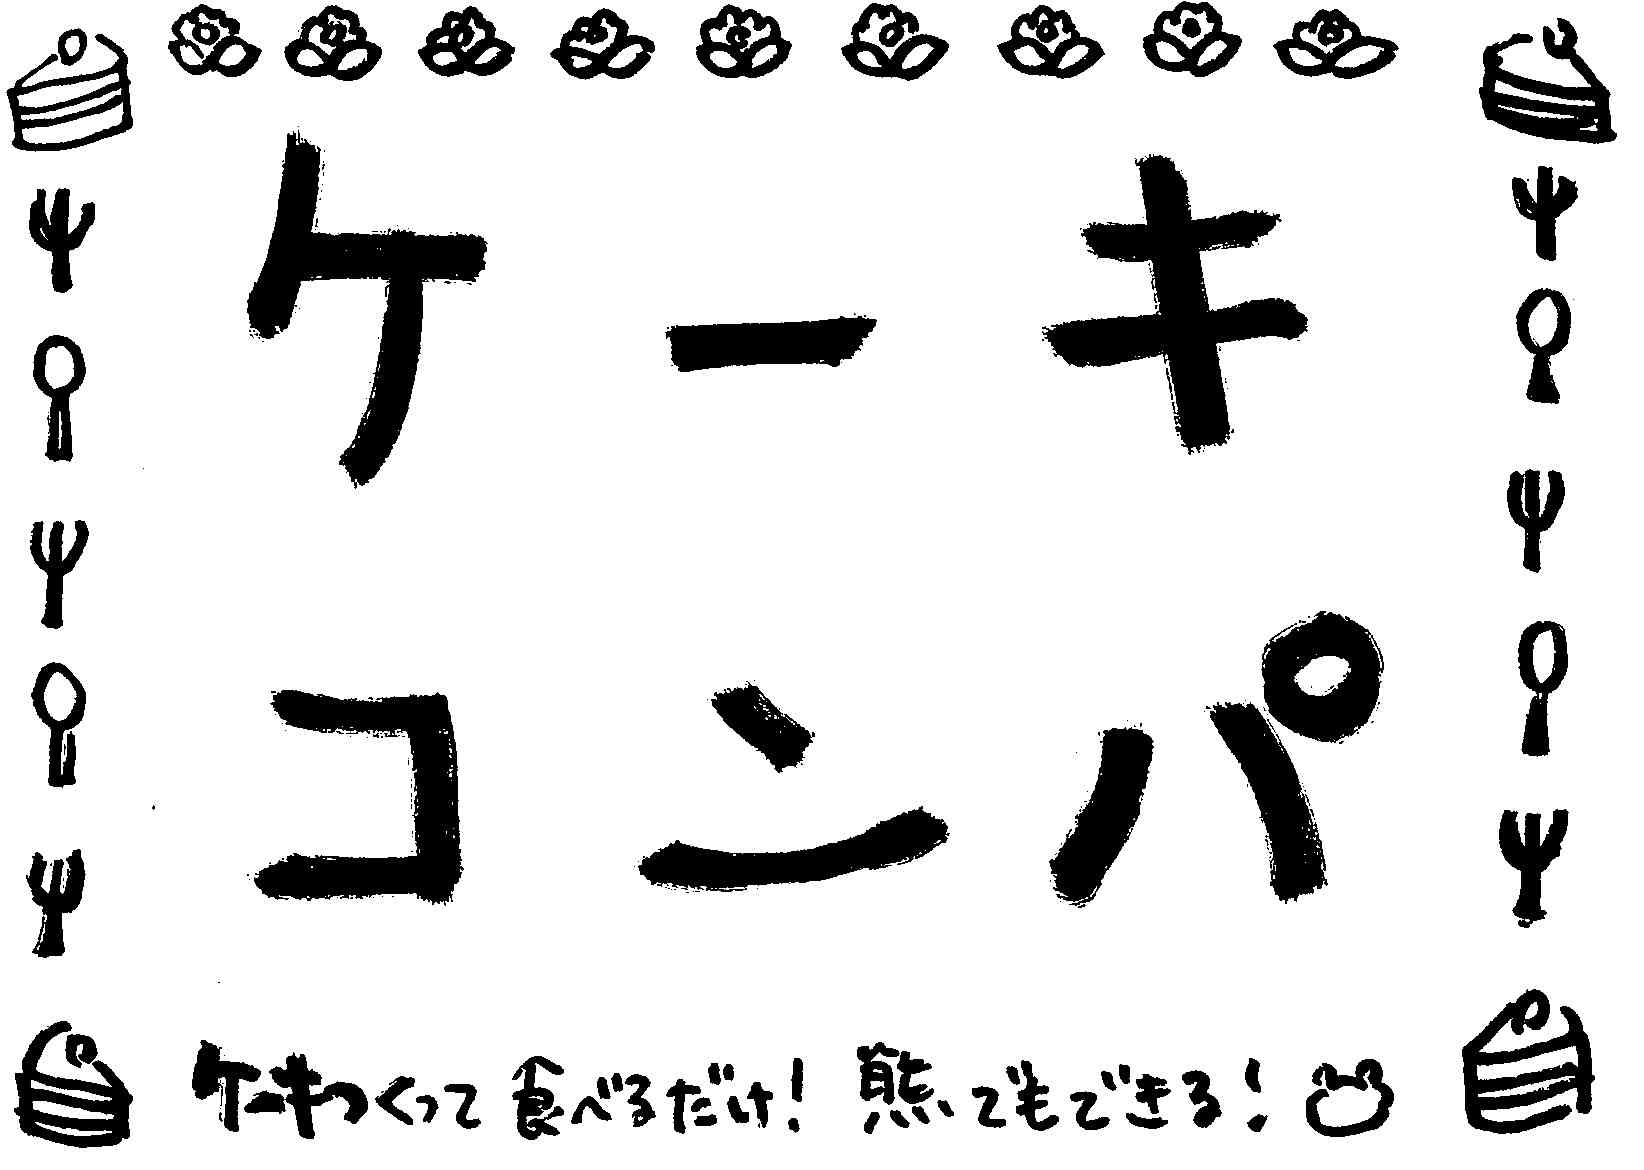 ケーキ
コンパ
ケーキつくって食べるだけ！ 熊でもできる！